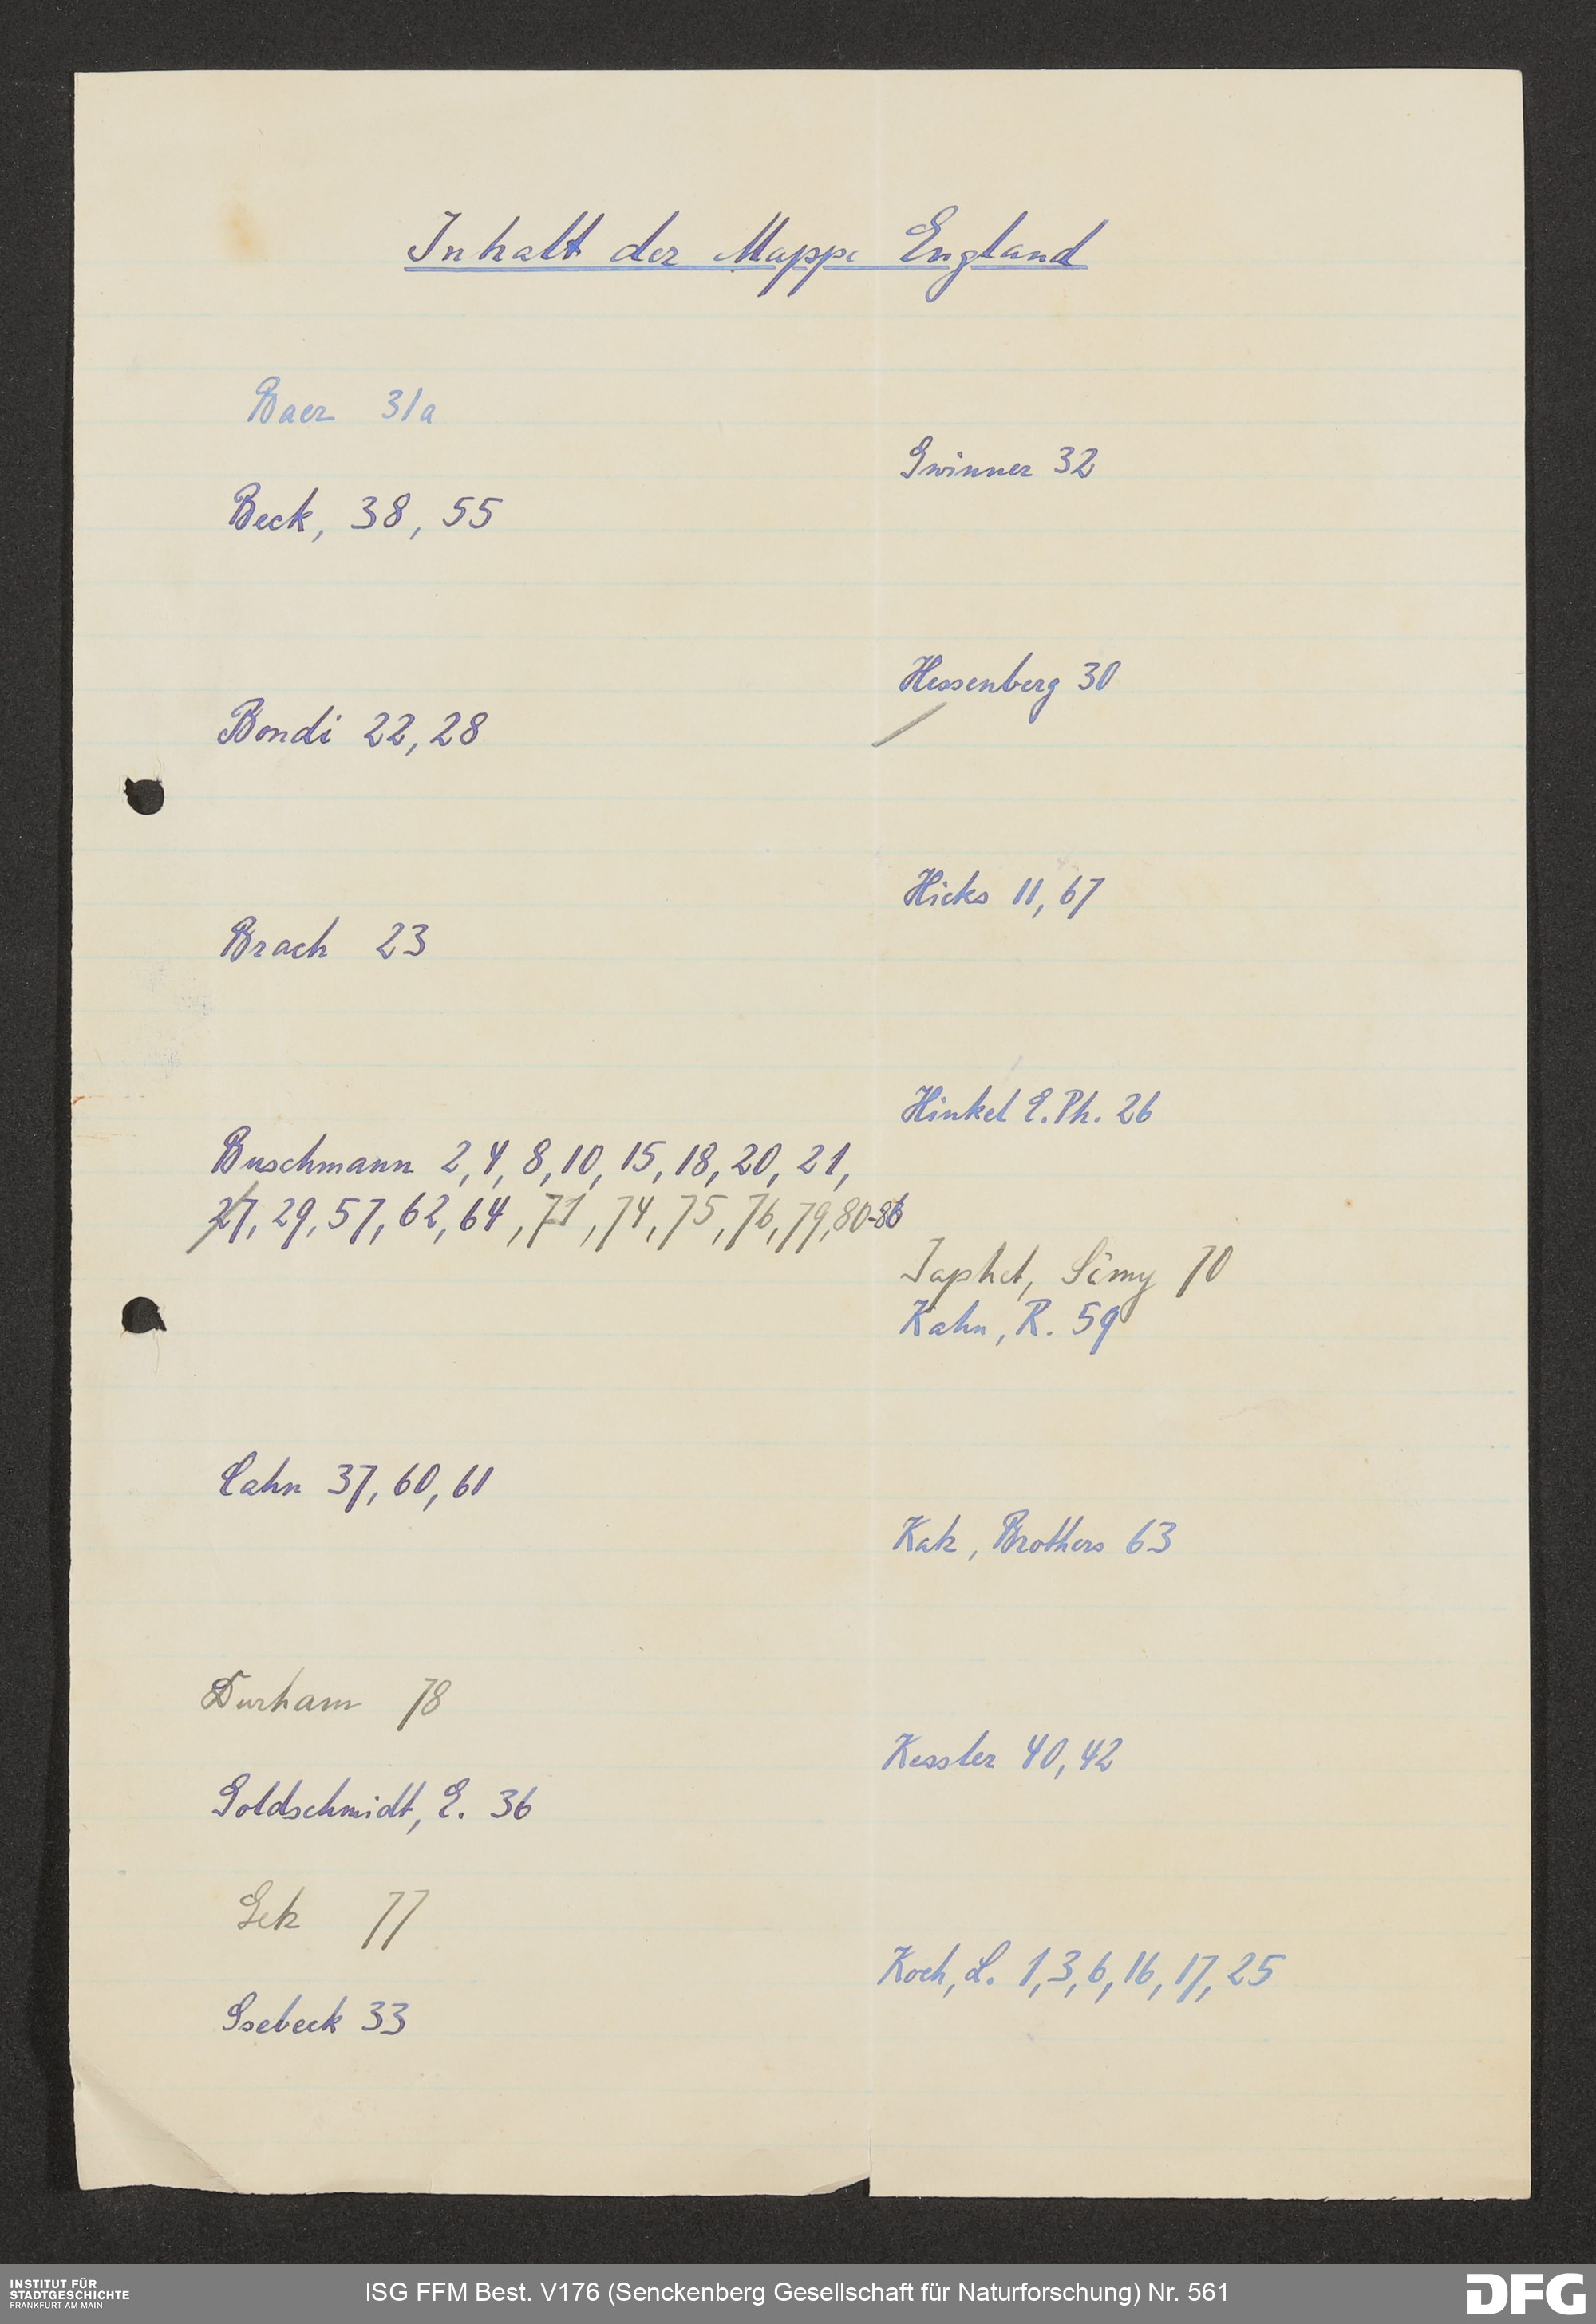 Inhalt der Mappe England
Baer 31a
Beck, 38, 55
Bondi 22, 28
Brach 23
Buschmann 2, 4, 8, 10, 15, 18, 20, 21,
27, 29, 57, 62, 64, 71, 74, 75, 76, 79, 80-86
Cahn 37, 60, 61
Durham 78
Goldschmidt, E. 36
77
Gsebeck 33
Gwinner 32
Hessenberg 30
Hicks 11, 67
Hinkel E. Ph. 26
Japhet, 70
Kahn, R. 59
Katz, Brothers 63
Kessler 40, 42
Koch, L. 1, 3, 6, 16, 17, 25
INSTITUT FÜR
STADTGESCHICHTE
FRANKFURT AM MAIN
ISG FFM Best. V176 (Senckenberg Gesellschaft für Naturforschung) Nr. 561
DFG